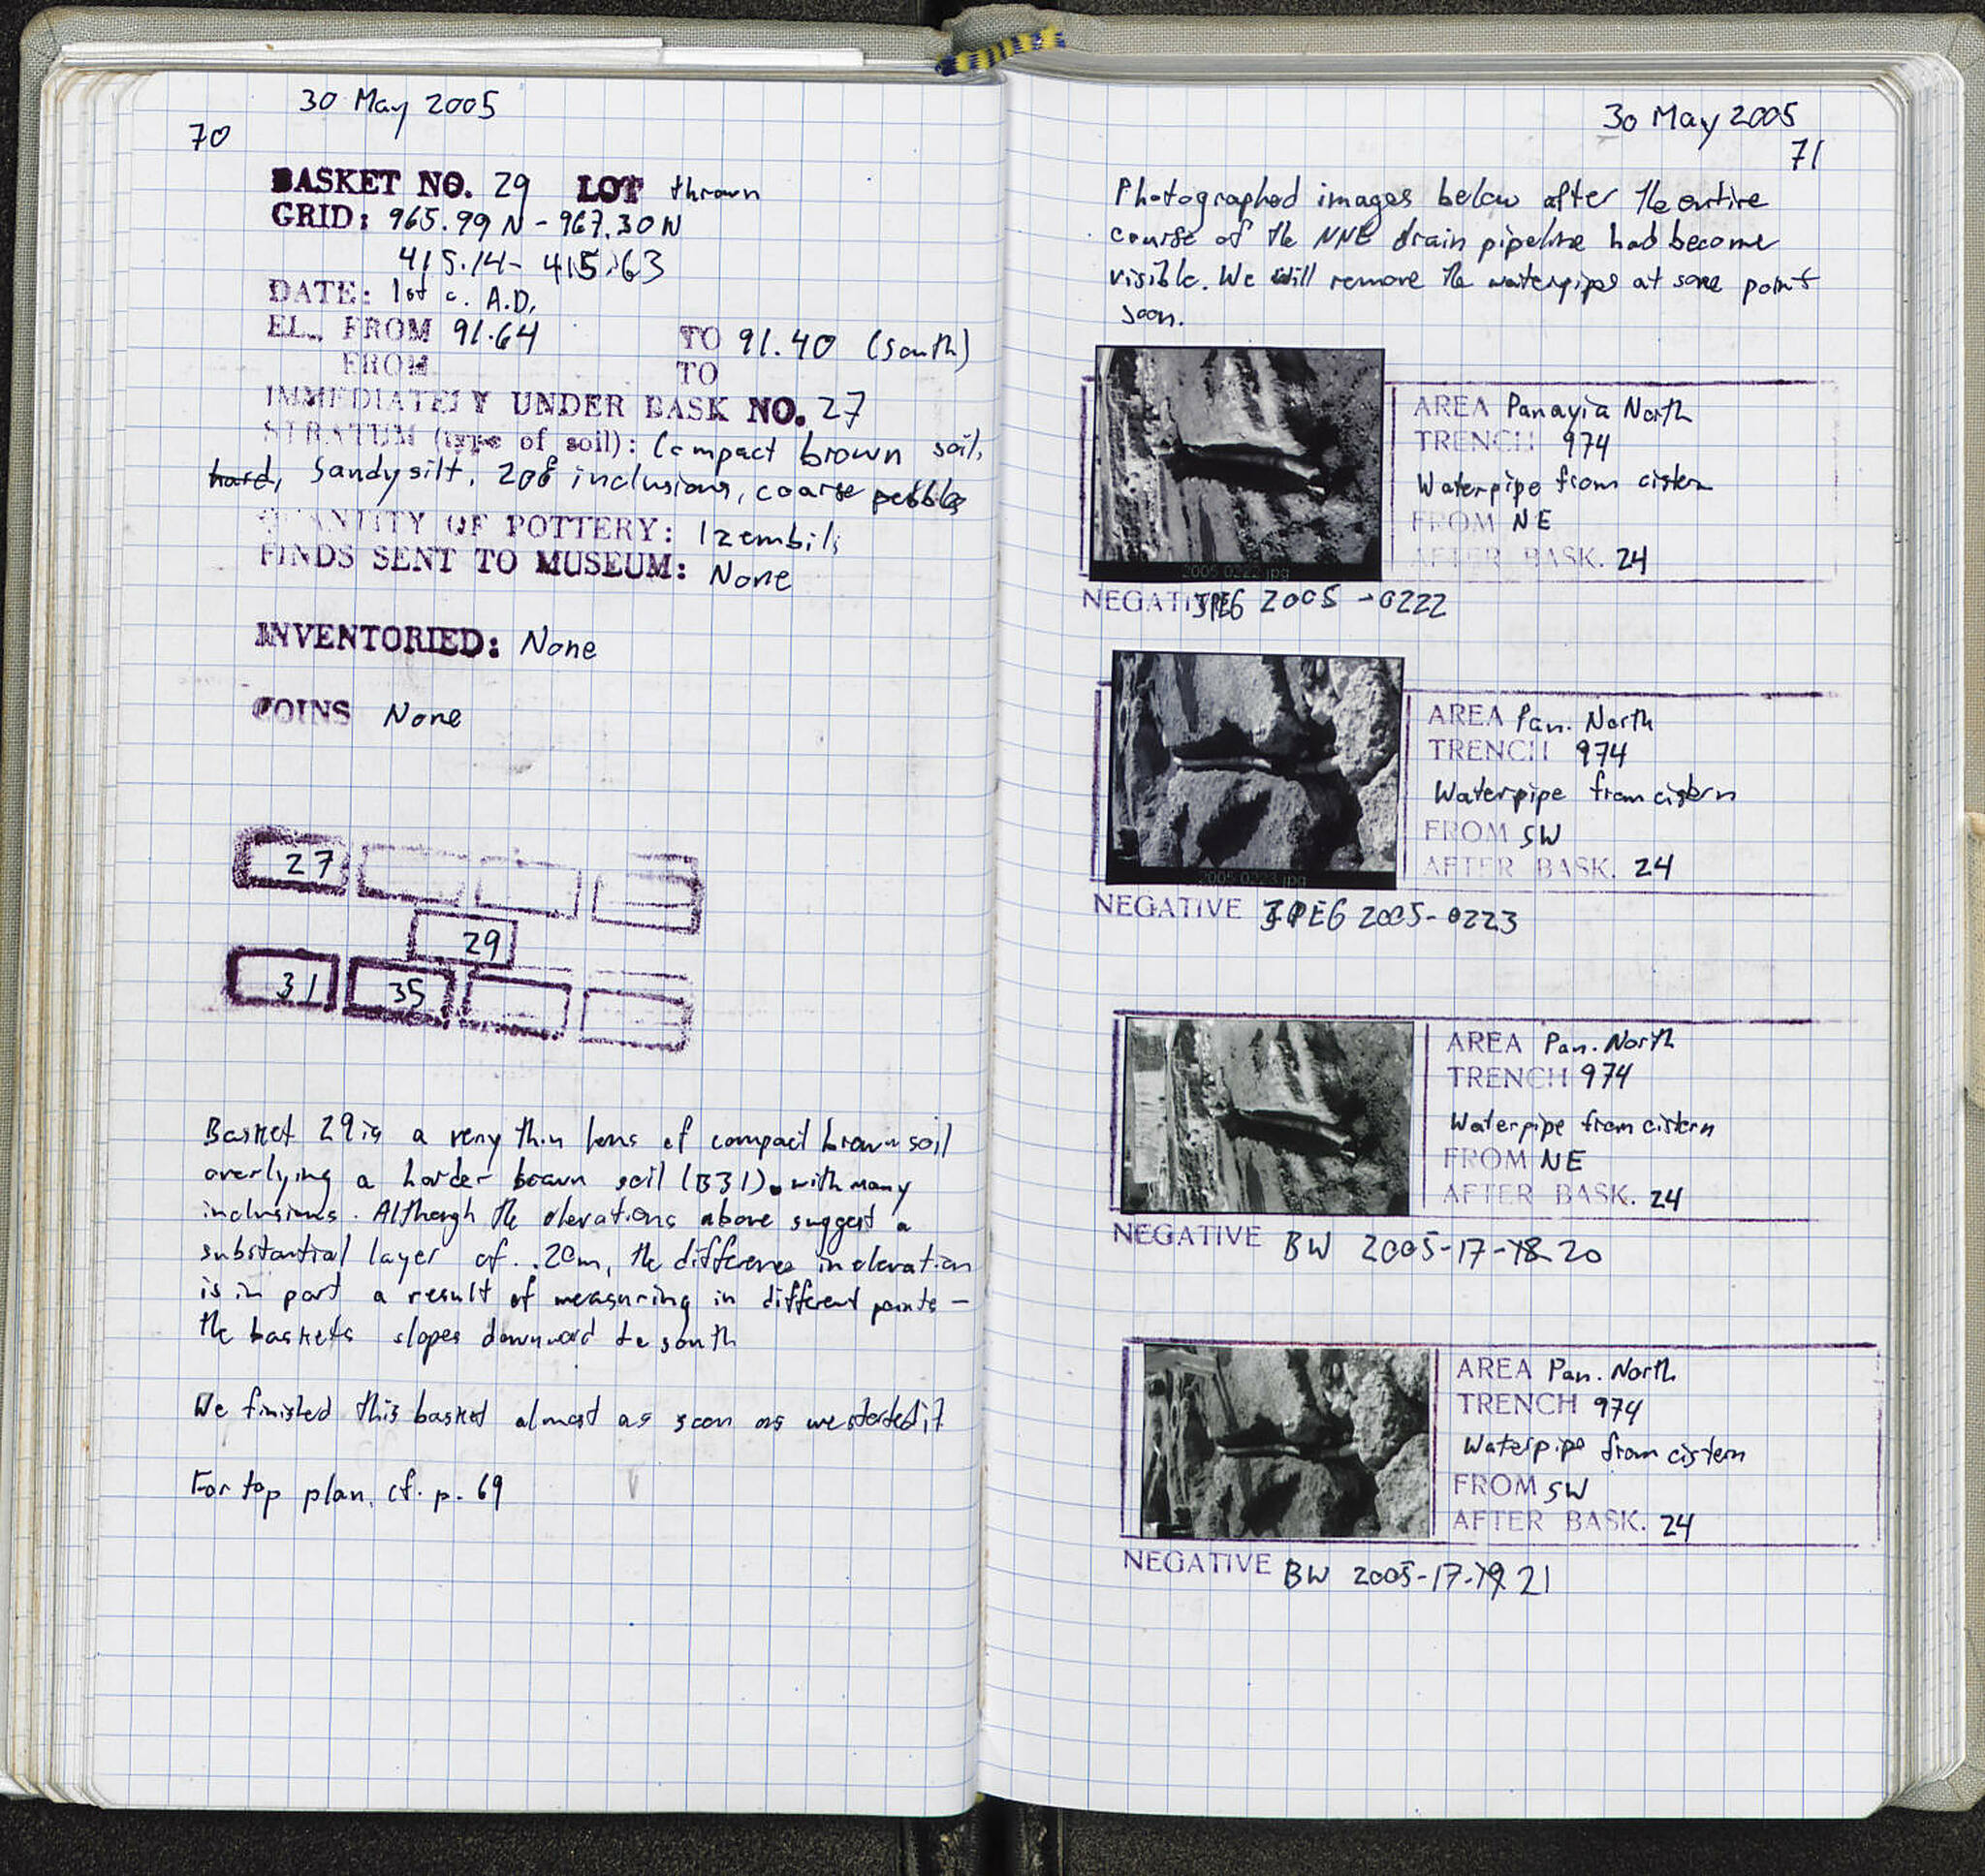 30 May 2005
70
BASKET NO. 29 LOT thrown
GRID: 965.99 N - 967.30 N
415.14 - 415.63
DATE: 1st c. A.D.
EL. FROM 91.64 TO 91.40 (south)
FROM TO
IMMEDIATELY UNDER BASK NO. 27
STRATUM (type of soil): Compact brown soil,
hard, sandy silt, inclusions, coarse pebbles
QUANTITY OF POTTERY: 1 zembili
FINDS SENT TO MUSEUM: None
INVENTORIED: None
COINS None
27
29
31 35
Basket 29 is a very thin lens of compact brown soil
overlying a harder brown soil (B31) with many
inclusions. Although the elevations above suggest a
substantial layer of .20m, the difference in elevation
is in part a result of measuring in different points -
the baskets slopes downward to south
We finished this basket almost as soon as we started it
For top plan, cf. p. 69
30 May 2005
71
Photographed images below after the entire
course of the NNE drain pipeline had become
visible. We will remove the waterpipe at some point
soon.
AREA Panayia North
TRENCH 974
Waterpipe from cistern
FROM NE
AFTER BASK. 24
2005 0222.jpg
NEGATIVE JPEG 2005-0222
AREA Pan. North
TRENCH 974
Waterpipe from cistern
FROM SW
AFTER BASK. 24
2005 0223.jpg
NEGATIVE JPEG 2005-0223
AREA Pan. North
TRENCH 974
Waterpipe from cistern
FROM NE
AFTER BASK. 24
NEGATIVE BW 2005-17-18 20
AREA Pan. North
TRENCH 974
Waterpipe from cistern
FROM SW
AFTER BASK. 24
NEGATIVE BW 2005-17-19 21